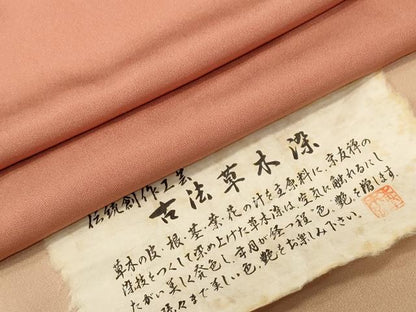 伝統創作工芸
古法草木染
草木の皮、根、茎、葉、花の汁を主原料に、京友禅の
染技をつくして染め上げた草木染は、空気に触れるにし
たがい美しく発色し、年月が経つ程、色、艶を増します。
まで美しい色、艶をお楽しみ下さい。